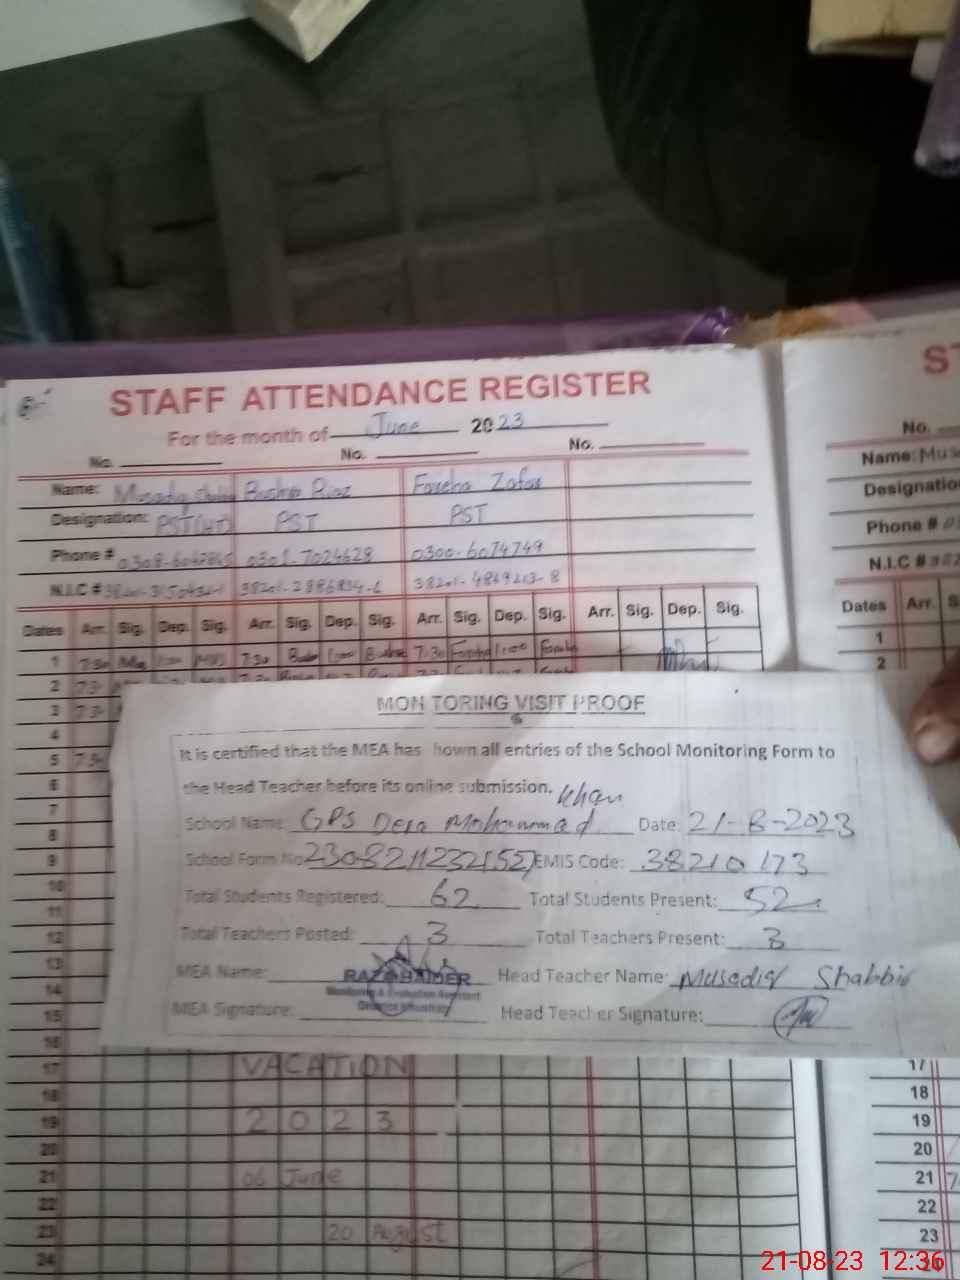 STAFF ATTENDANCE REGISTER
For the month of June 2023
No. No. No.
Name: Musadiq Bushra Riaz Fareha Zafar
Designation: PST(HT) PST PST
Phone # 0301-7024628 0300-6074749
N.I.C # 38201-4869213-8
Dates Arr. Sig. Dep. Sig. Arr. Sig. Dep. Sig. Arr. Sig. Dep. Sig. Arr. Sig. Dep. Sig.
1 7:30 1:00 7:30 1:00 7:30 1:00
2
3
4
5
6
7
8
9
10
11
12
13
14
15
16
17 VACATION
18
19 2023
20
21 06 June
22
23 20 August
24
MONITORING VISIT PROOF
It is certified that the MEA has hown all entries of the School Monitoring Form to
the Head Teacher before its online submission.
Khan
School Name: GPS Dera Mohammad Date: 21-8-2023
School Form No. EMIS Code: 38210173
Total Students Registered: 62 Total Students Present: 52
Total Teachers Posted: 3 Total Teachers Present: 3
MEA Name: RAZA HAIDER Head Teacher Name: Musadiq Shabbir
Monitoring & Evaluation Assistant
MEA Signature: Head Teacher Signature:
ST
No.
Name: Mus
Designatio
Phone #
N.I.C #
Dates Arr. S
1
2
17
18
19
20
21 7
22
23
21-08-23 12:36